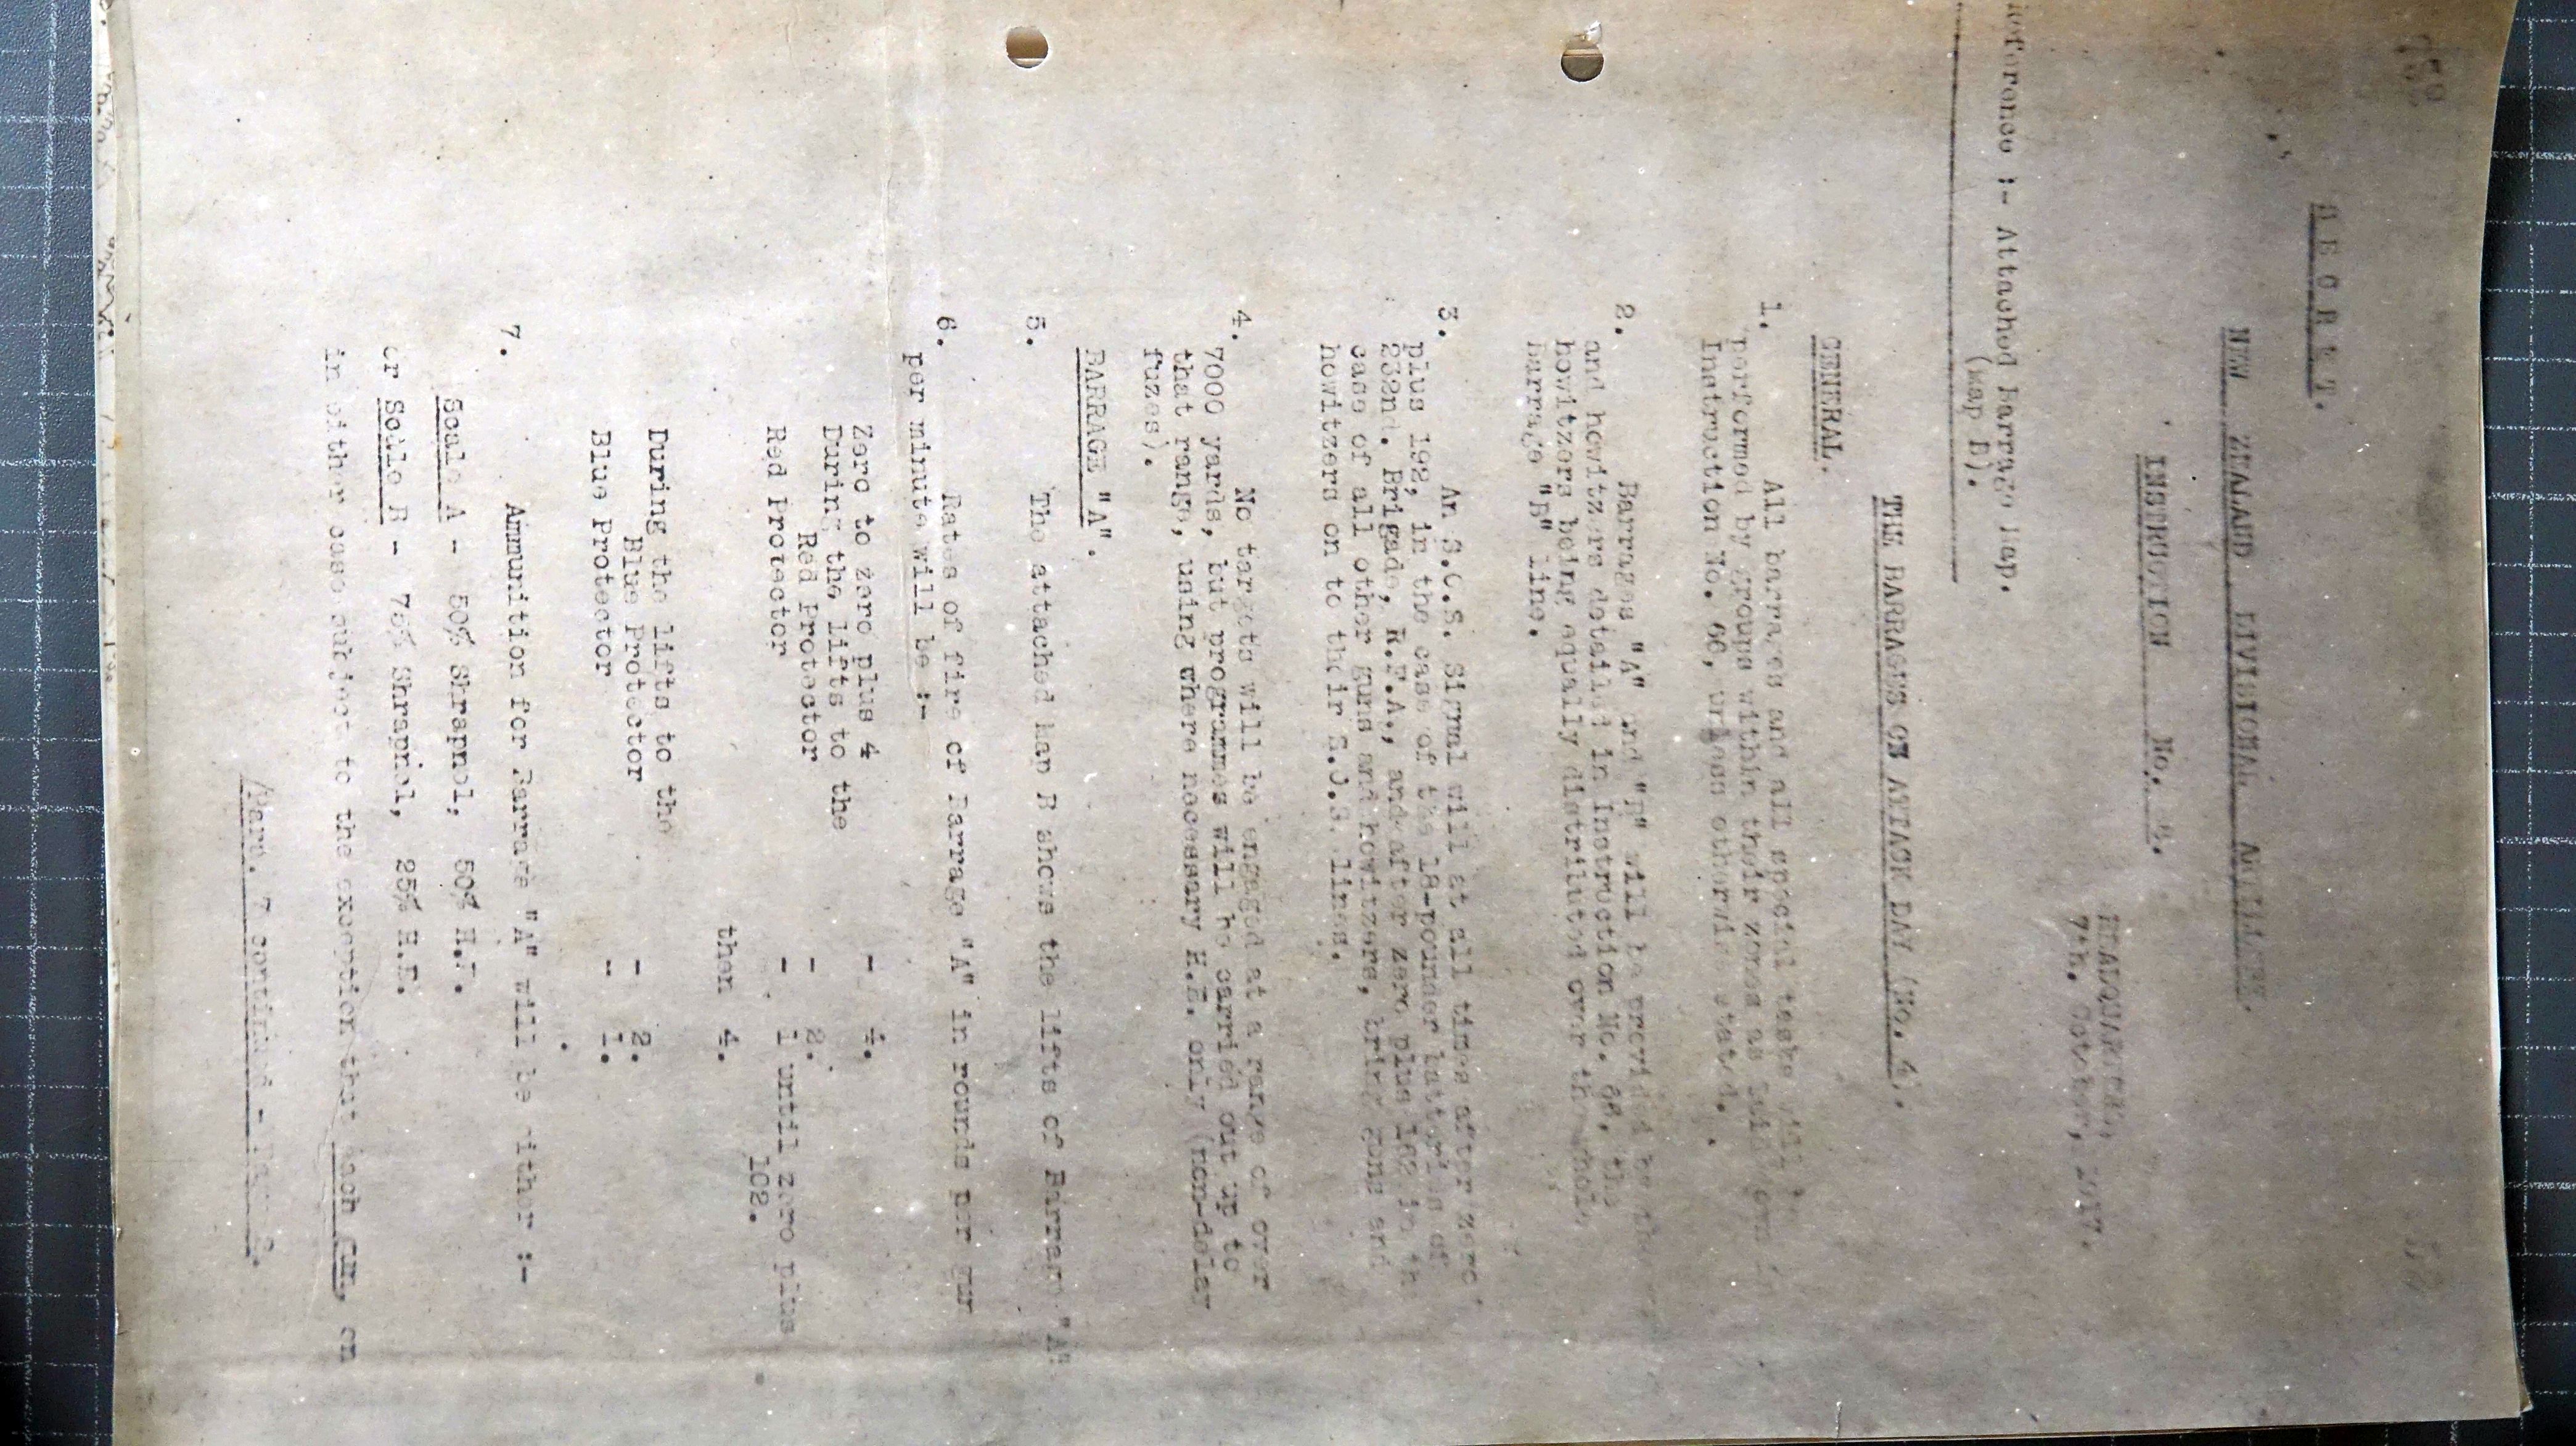 SECRET.
NEW ZEALAND DIVISIONAL ARTILLERY.
INSTRUCTION No.
HEADQUARTERS,
7th. October, 1917.
Reference :- Attached Barrage Map.
(Map B).
THE BARRAGES ON ATTACK DAY (No. 4).
GENERAL.
1. All barrages and all special tasks will be
performed by groups within their zones as laid down in
Instruction No. 66, unless otherwise stated.
2. Barrages "A" and "B" will be provided by the
and howitzers detailed in Instruction No. 66, the
howitzers being equally distributed over the whole
barrage "B" line.
3. An S.O.S. Signal will at all times after zero
plus 192, in the case of the 18-pounder batteries of
232nd. Brigade, R.F.A., and after zero plus 162 in the
case of all other guns and howitzers, bring guns and
howitzers on to their S.O.S. lines.
4. No targets will be engaged at a range of over
7000 yards, but programmes will be carried out up to
that range, using where necessary H.E. only (non-delay
fuzes).
BARRAGE "A".
5. The attached Map B shows the lifts of Barrage "A"
6. Rates of fire of Barrage "A" in rounds per gun
per minute will be :-
Zero to zero plus 4 - 4.
During the lifts to the
Red Protector - 2.
Red Protector - 1 until zero plus
102.
then 4.
During the lifts to the
Blue Protector - 2.
Blue Protector - 1.
7. Ammunition for Barrage "A" will be either :-
Scale A - 50% Shrapnel, 50% H.E.
or Scale B - 75% Shrapnel, 25% H.E.
in either case subject to the exception that each gun, on
/Para. 7 continued -